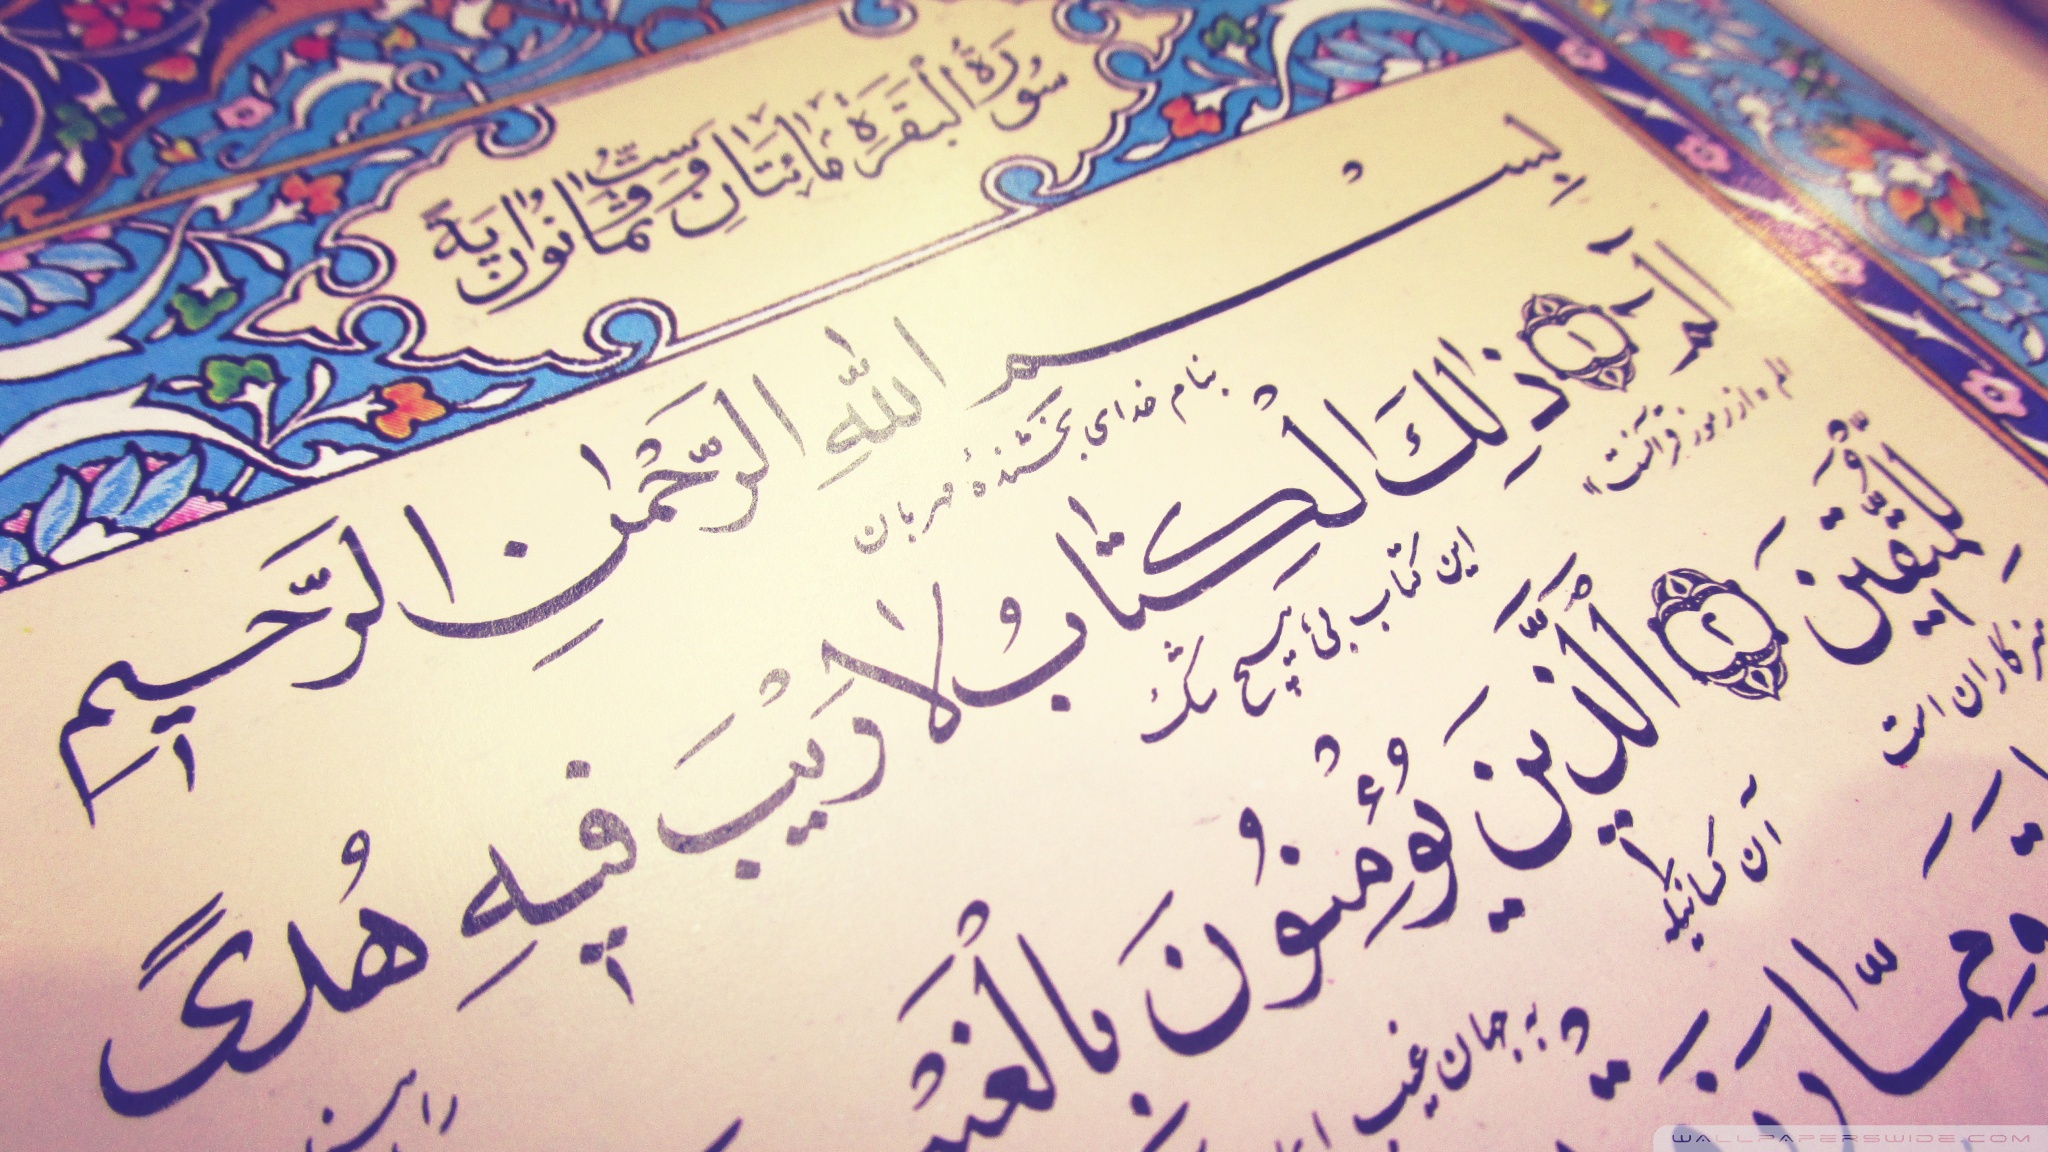 سُورَةُ الْبَقَرَةِ مِائَتَانِ وَسِتٌّ وَثَمَانُونَ آيَةً
بِسْمِ اللّٰهِ الرَّحْمٰنِ الرَّحِيمِ
بنام خدای بخشندهٔ مهربان
الٓمٓ ۱ ذٰلِكَ الْكِتَابُ لَا رَيْبَ فِيهِ هُدًى
الم از رموز قرآنست این کتاب بی هیچ شک
لِلْمُتَّقِينَ ۲ اَلَّذِينَ يُؤْمِنُونَ بِالْغَيْبِ
کاران است آن کسانیکه به جهان غیب
وَمِمَّا
WALLPAPERSWIDE.COM